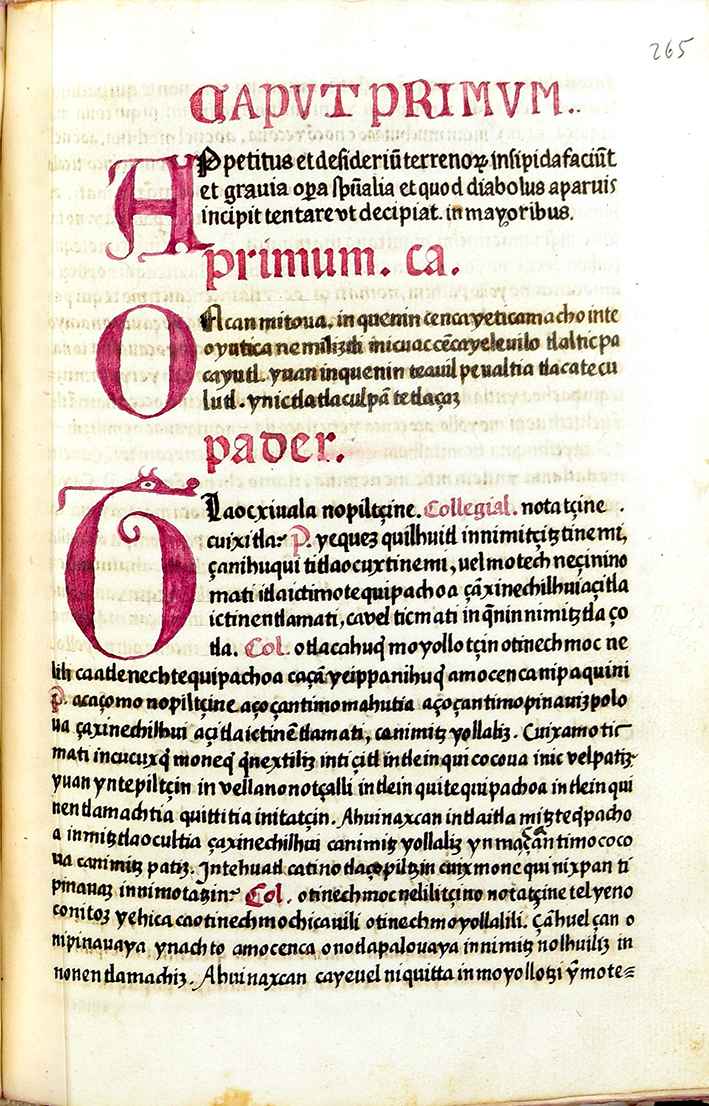 265
CAPVT PRIMVM..
APpetitus et desideriũ terrenoꝝ insipida faciũt
et gravia oꝑa spũalia et quod diabolus aparuis
incipit tentare vt decipiat. in mayoribus.
primum. ca.
ONcan mitoua. in quenin cenca yeticamacho inte
oyutica nemiliztli inicuac cẽca yeleuilo tlalticpa
cayutl. yuan inquenin teauilpeualtia tlacatecu
lutl. ynic tlatlaculpã tetlaçaz
pader.
TLaocxiuala nopiltçine. Collegial. notatçine .
cuixitla? P. yequez quilhuitl innimitçitztinemi,
çanihuqui titlaocuxtinemi, uel motech neçi nino
mati itla ictimotequipachoa çã xinechilhui açitla
ictinentlamati, ca vel ticmati in q̃nin nimitztlaço
tla. Col. otlacahuq̃ moyollotçin otinechmocne
lili ca atle nechtequipachoa ca çã yeippanihuq̃ amo cenca nipaquini
P. acaçomo nopiltçine aço çan timomahutia aço çan timopinauizpolo
ua çaxinechilhui açitla ictinẽtlamati, canimitz yollaliz. Cuix amo tic
mati in cucuxq̃ moneq̃ q̃nextiliz inticitl intlein qui cocoua inic vel patiz
yuan yn tepiltçin in vellanonotçalli intlein quitequipachoa intlein qui
nentlamachtia quittitia initatçin. Ahuinaxcan intlaitla mitzteq̃pacho
a in mitztlaocultia çaxinechilhui canimitz yollaliz yn maçaçan timococo
ua canimitz patiz. Intehuatl catinotlaçopiltzin cuix monequi nixpan ti
pinauaz innimotatzin? Col. otinechmocnelilitçino notatçine tel yeno
conitoz yehica ca otinechmochicauili otinechmoyollalili. Çã huel çan o
nipinauaya ynachto amo cenca onotlapalouaya innimitznolhuiliz in
nonentlamachiz. Ahuinaxcan cayeuel niquitta in moyollotzi ỹmote=